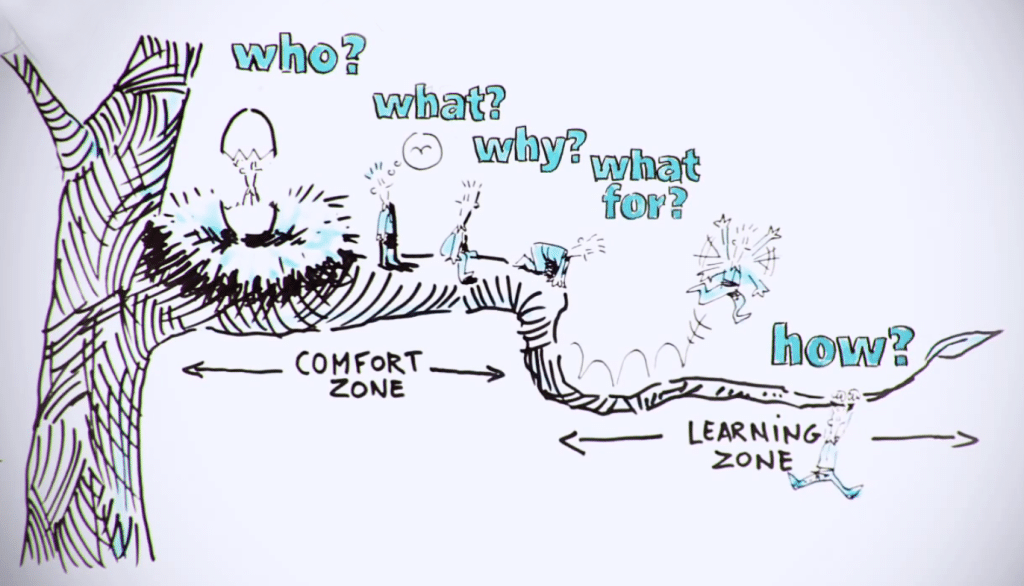 who?
what?
why?
what
for?
how?
COMFORT
ZONE
LEARNING
ZONE